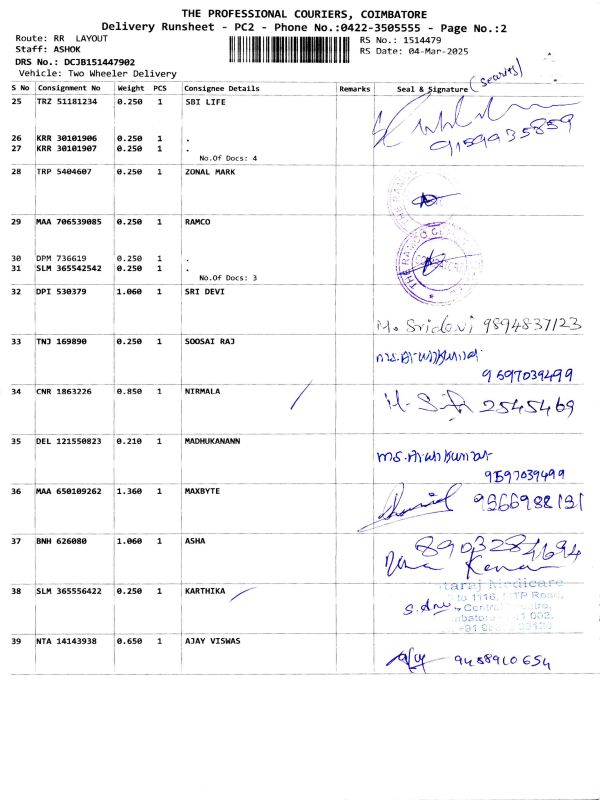 THE PROFESSIONAL COURIERS, COIMBATORE
Delivery Runsheet - PC2 - Phone No.:0422-3505555 - Page No.:2
Route: RR LAYOUT RS No.: 1514479
Staff: ASHOK RS Date: 04-Mar-2025
DRS No.: DCJB151447902
Vehicle: Two Wheeler Delivery
S No Consignment No Weight PCS Consignee Details Remarks Seal & Signature
25 TRZ 51181234 0.250 1 SBI LIFE
9159935859
26 KRR 30101906 0.250 1 .
27 KRR 30101907 0.250 1 .
No.Of Docs: 4
28 TRP 5404607 0.250 1 ZONAL MARK
29 MAA 706539085 0.250 1 RAMCO
30 DPM 736619 0.250 1 .
31 SLM 365542542 0.250 1 .
No.Of Docs: 3
32 DPI 530379 1.060 1 SRI DEVI
M. Sridevi 9894837123
33 TNJ 169890 0.250 1 SOOSAI RAJ
9597039499
34 CNR 1863226 0.850 1 NIRMALA
2545469
35 DEL 121550823 0.210 1 MADHUKANANN
9597039499
36 MAA 650109262 1.360 1 MAXBYTE
9366988131
37 BNH 626080 1.060 1 ASHA
8903284694
38 SLM 365556422 0.250 1 KARTHIKA
taraj Medicare
to 1116, NTP Road,
641 002.
39 NTA 14143938 0.650 1 AJAY VISWAS
9488910654